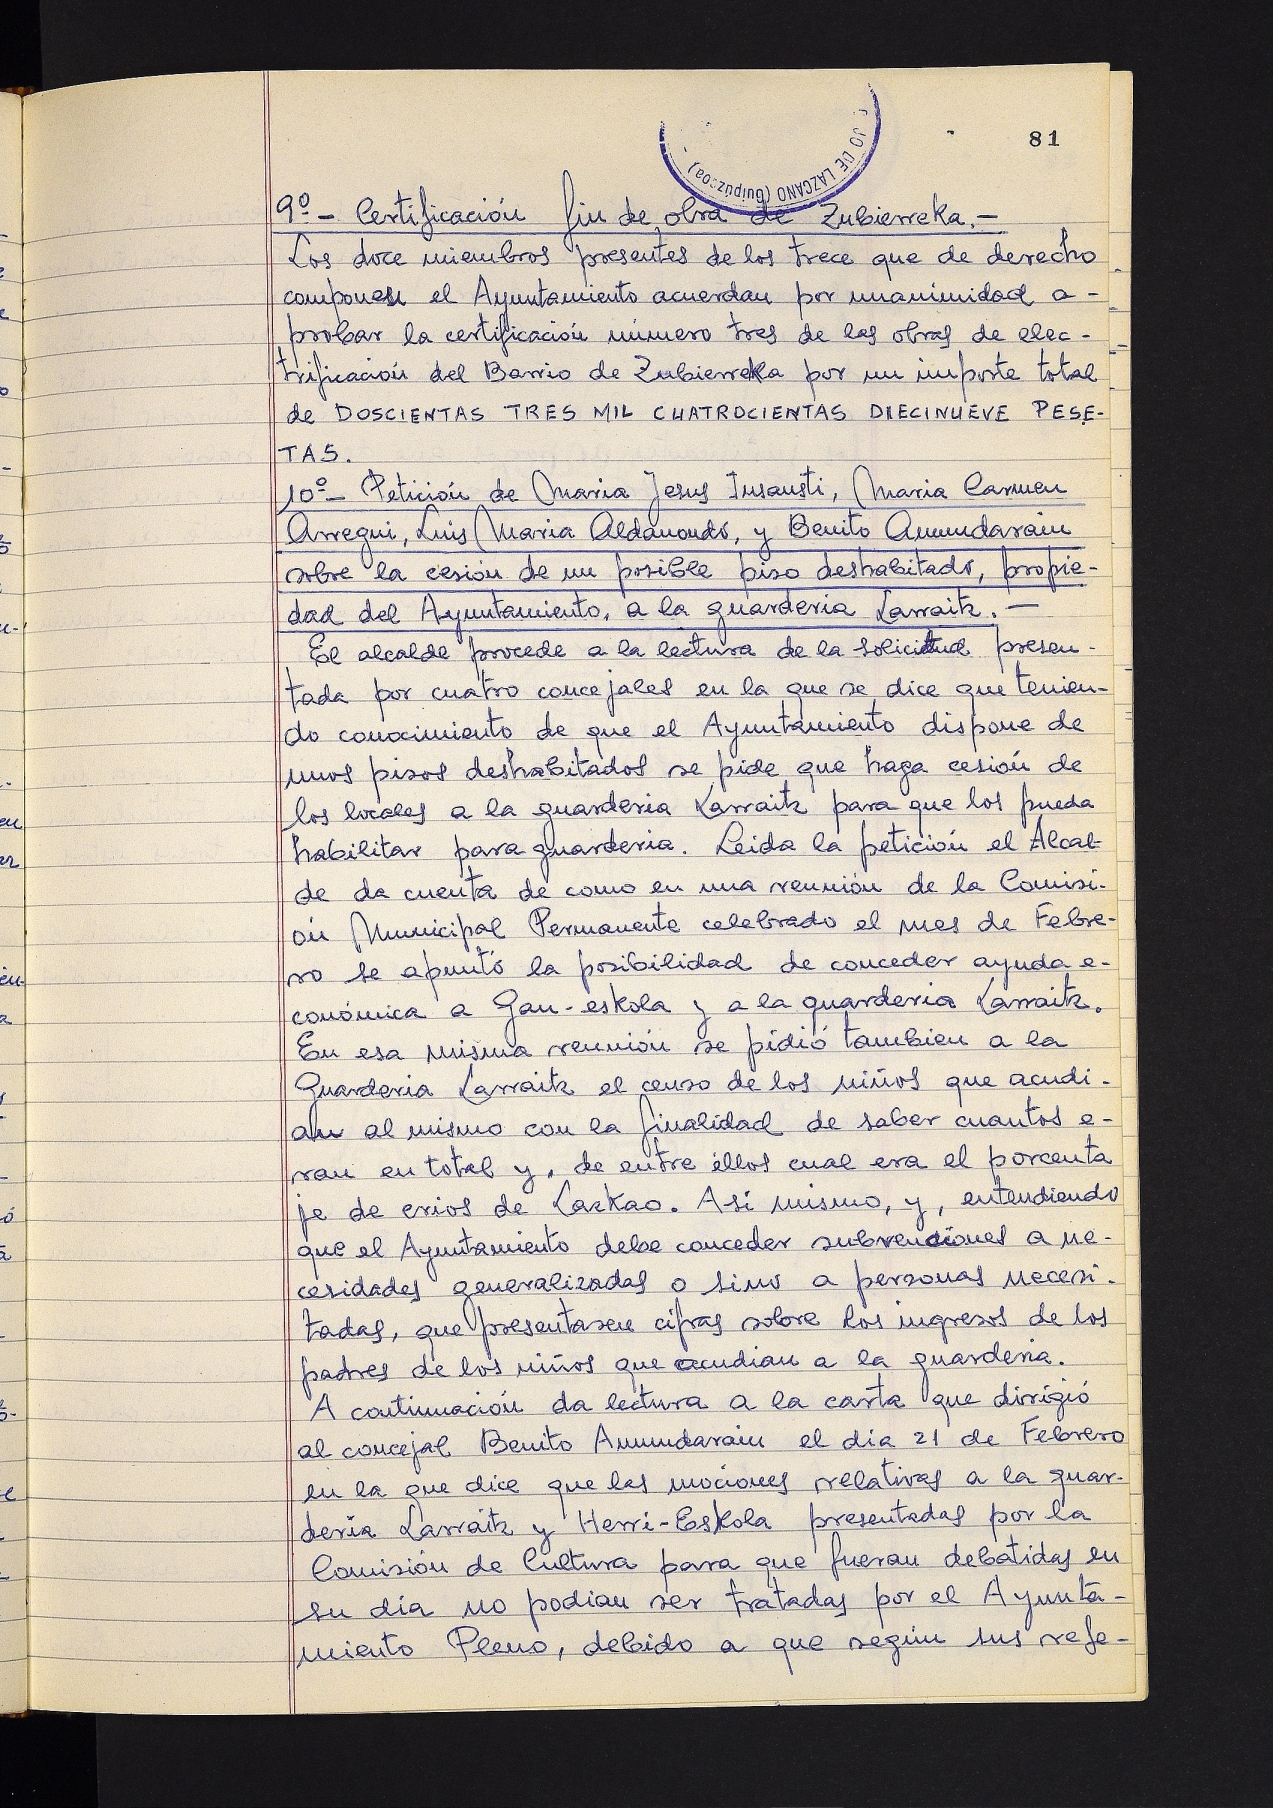 81
JO DE LAZCANO (Guipuzcoa)
9º - Certificación fin de obra de Zubierreka. -
Los doce miembros presentes de los trece que de derecho
componen el Ayuntamiento acuerdan por unanimidad a-
probar la certificación número tres de las obras de elec-
trificación del Barrio de Zubierreka por un importe total
de DOSCIENTAS TRES MIL CUATROCIENTAS DIECINUEVE PESE-
TAS.
10º - Petición de Maria Jesus Insausti, Maria Carmen
Arregui, Luis Maria Aldanondo, y Benito Amundarain
sobre la cesión de un posible piso deshabitado, propie-
dad del Ayuntamiento, a la guarderia Larraitz. -
El alcalde procede a la lectura de la solicitud presen-
tada por cuatro concejales en la que se dice que tenien-
do conocimiento de que el Ayuntamiento dispone de
unos pisos deshabitados se pide que haga cesión de
los locales a la guarderia Larraitz para que los pueda
habilitar para guarderia. Leida la petición el Alcal-
de da cuenta de como en una reunión de la Comisi-
ón Municipal Permanente celebrado el mes de Febre-
ro se apuntó la posibilidad de conceder ayuda e-
conómica a Gau-eskola y a la guarderia Larraitz.
En esa misma reunión se pidió tambien a la
Guarderia Larraitz el censo de los niños que acudi-
an al mismo con la finalidad de saber cuantos e-
ran en total y, de entre éllos cual era el porcenta
je de crios de Lazkao. Asi mismo, y, entendiendo
que el Ayuntamiento debe conceder subvenciones a ne-
cesidades generalizadas o sino a personas necesi-
tadas, que presentasen cifras sobre los ingresos de los
padres de los niños que acudian a la guarderia.
A continuación da lectura a la carta que dirigió
al concejal Benito Amundarain el dia 21 de Febrero
en la que dice que las mociones relativas a la guar-
deria Larraitz y Herri-Eskola presentadas por la
Comisión de Cultura para que fueran debatidas en
su dia no podian ser tratadas por el Ayunta-
miento Pleno, debido a que según sus refe-